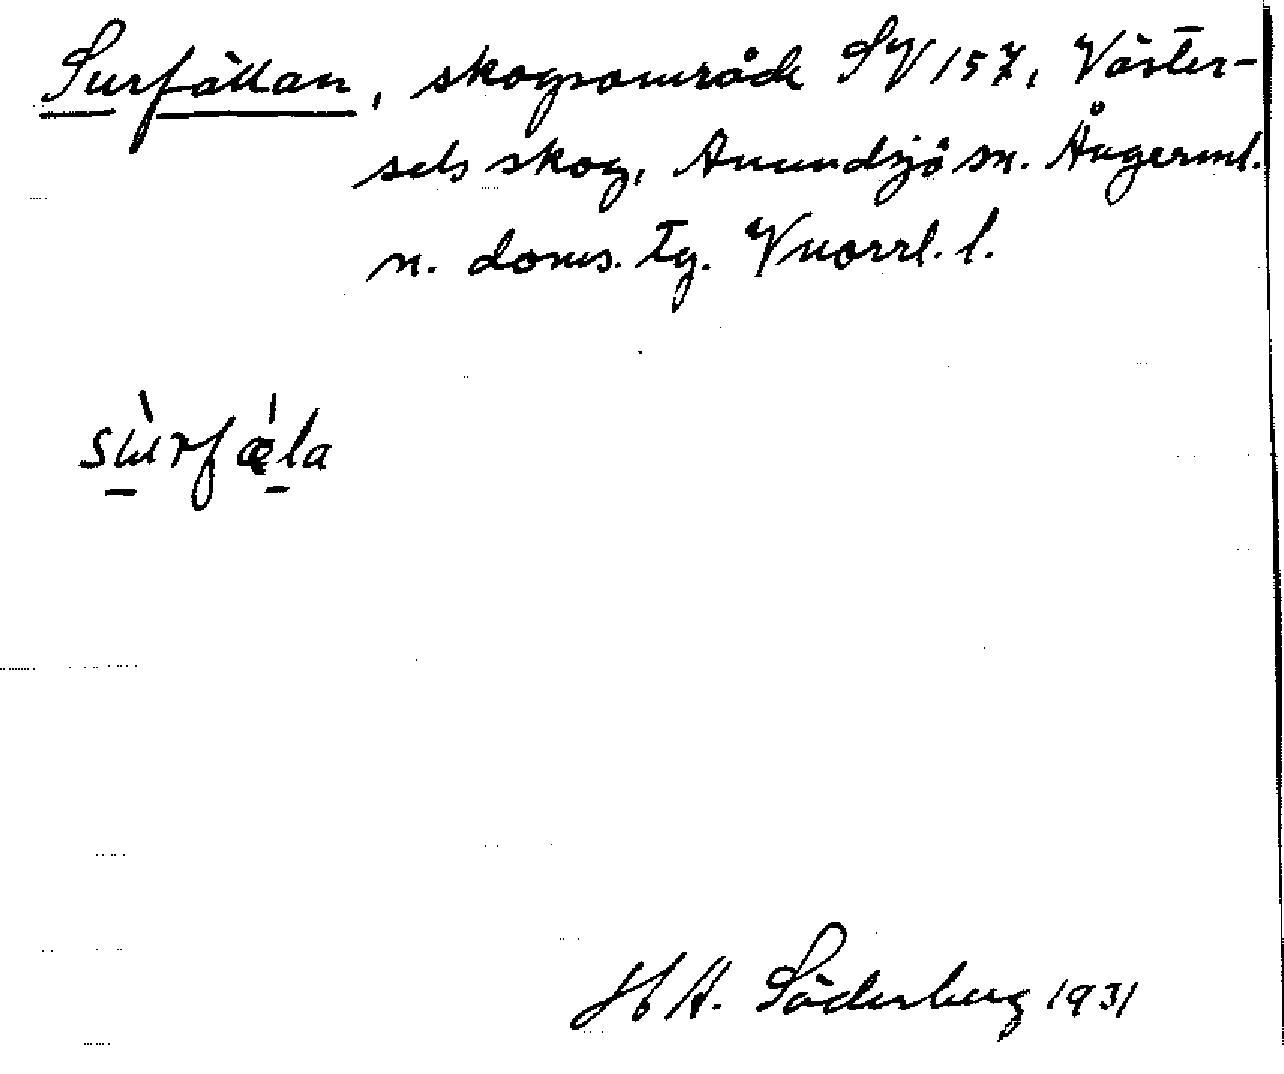 Surfällan, skogsområde SV 157, Väster-
sels skog, Anundsjö sn. Ångerml.
n. doms. tg. Vnorrl. l.
sùrfǽ̨la
H A. Söderberg 1931